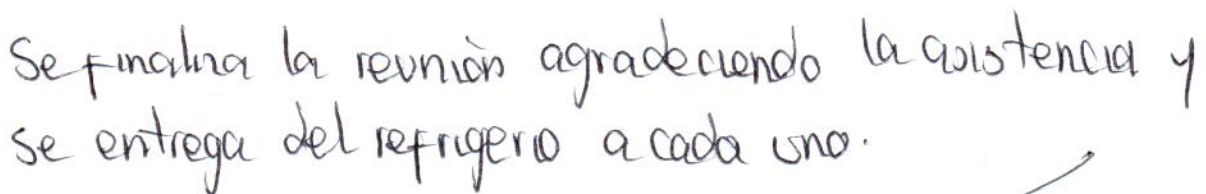 Se finaliza la reunión agradeciendo la asistencia y
se entrega del refrigerio a cada uno.